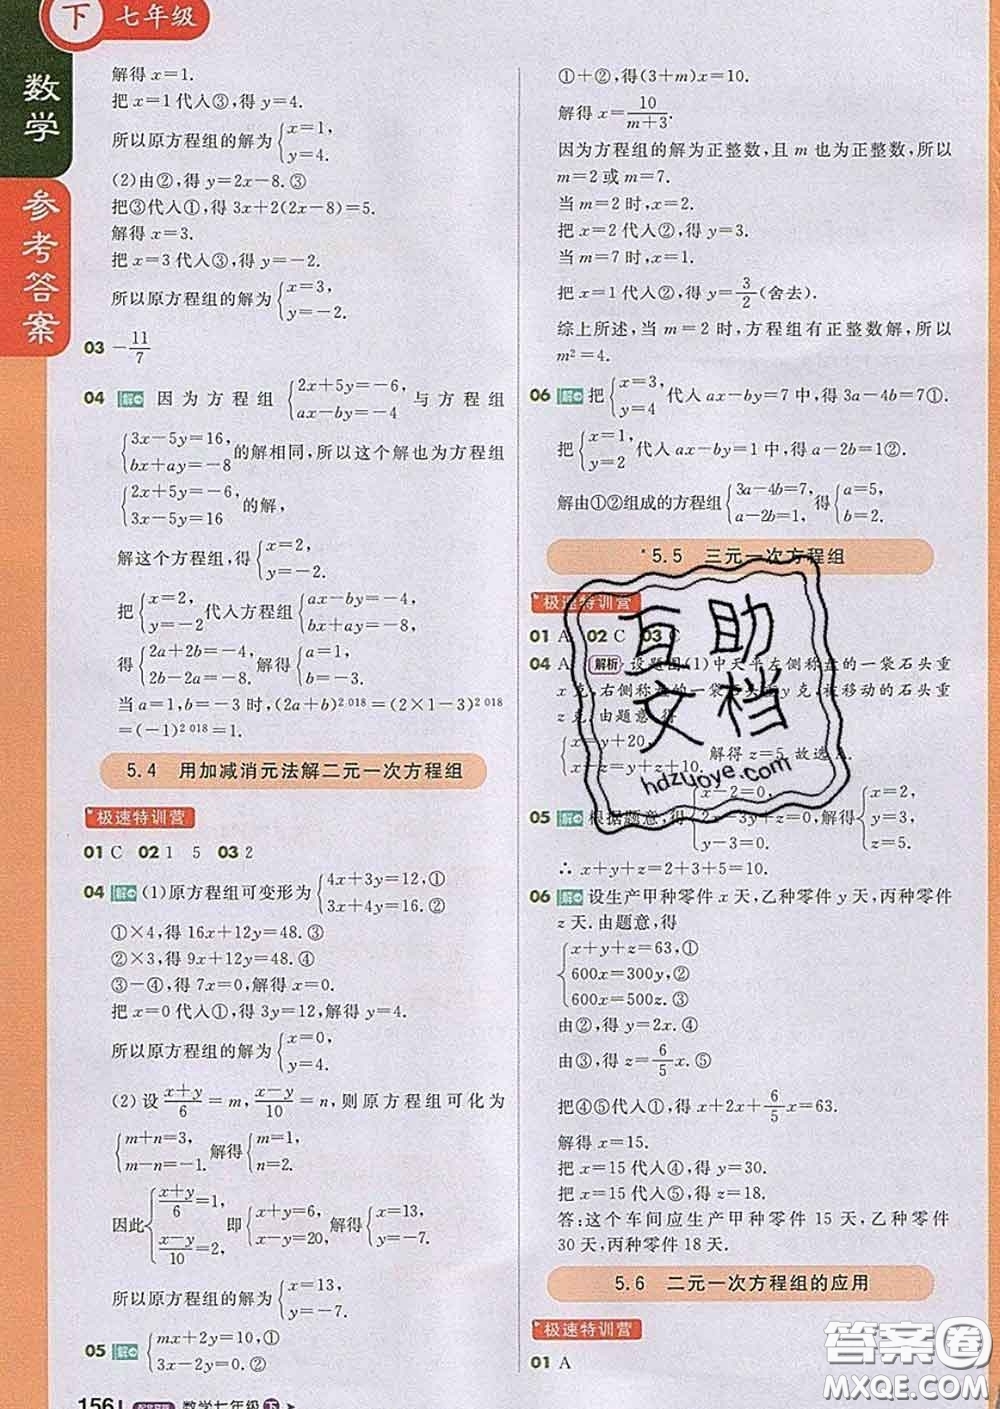 下 七年级
数学
参考答案
解得 x=1.
把 x=1 代入③,得 y=4.
所以原方程组的解为{x=1, y=4.
(2)由②,得 y=2x-8.③
把③代入①,得 3x+2(2x-8)=5.
解得 x=3.
把 x=3 代入③,得 y=-2.
所以原方程组的解为{x=3, y=-2.
03 -11/7
04 解 因为方程组 {2x+5y=-6, ax-by=-4 与方程组
{3x-5y=16, bx+ay=-8 的解相同,所以这个解也为方程组
{2x+5y=-6, 3x-5y=16 的解,
解这个方程组,得{x=2, y=-2.
把{x=2, y=-2 代入方程组{ax-by=-4, bx+ay=-8,
得{2a+2b=-4, 2b-2a=-8. 解得{a=1, b=-3.
当 a=1,b=-3 时,(2a+b)^2 018=(2×1-3)^2 018
=(-1)^2 018=1.
5.4 用加减消元法解二元一次方程组
极速特训营
01 C 02 1 5 03 2
04 解 (1)原方程组可变形为{4x+3y=12,① 3x+4y=16.②
①×4,得 16x+12y=48.③
②×3,得 9x+12y=48.④
③-④,得 7x=0,解得 x=0.
把 x=0 代入①,得 3y=12,解得 y=4.
所以原方程组的解为{x=0, y=4.
(2) 设 (x+y)/6=m, (x-y)/10=n, 则原方程组可化为
{m+n=3, m-n=-1. 解得{m=1, n=2.
因此{(x+y)/6=1, (x-y)/10=2, 即{x+y=6, x-y=20, 解得{x=13, y=-7.
所以原方程组的解为{x=13, y=-7.
05 解 {mx+2y=10,① 3x-2y=0.②
156 数学七年级 下
①+②,得(3+m)x=10.
解得 x=10/(m+3).
因为方程组的解为正整数,且 m 也为正整数,所以
m=2 或 m=7.
当 m=2 时,x=2.
把 x=2 代入②,得 y=3.
当 m=7 时,x=1.
把 x=1 代入②,得 y=3/2(舍去).
综上所述,当 m=2 时,方程组有正整数解,所以
m²=4.
06 解 把{x=3, y=4 代入 ax-by=7 中,得 3a-4b=7①.
把{x=1, y=2 代入 ax-by=1 中,得 a-2b=1②.
解由①②组成的方程组{3a-4b=7, a-2b=1, 得{a=5, b=2.
*5.5 三元一次方程组
极速特训营
01 A 02 C 03 C
04 A 解析 设题图(1)中天平左侧称盘的一袋石头重
x 克,右侧称盘的一袋石头重 y 克,被移动的石头重
z 克,由题意,得
{x=y+20, 解得 z=5.故选A.
05 解 根据题意,得{x-2=0, y-3=0. 解得{x=2, y=3, z=5.
∴ x+y+z=2+3+5=10.
06 解 设生产甲种零件 x 天,乙种零件 y 天,丙种零件
z 天.由题意,得
{x+y+z=63,①
600x=300y,②
600x=500z.③
由②,得 y=2x.④
由③,得 z=6/5 x.⑤
把④⑤代入①,得 x+2x+6/5 x=63.
解得 x=15.
把 x=15 代入④,得 y=30.
把 x=15 代入⑤,得 z=18.
答:这个车间应生产甲种零件 15 天,乙种零件
30 天,丙种零件 18 天.
5.6 二元一次方程组的应用
极速特训营
01 A
互助
文档
hdzuoye.com
答案圈
MXQE.COM